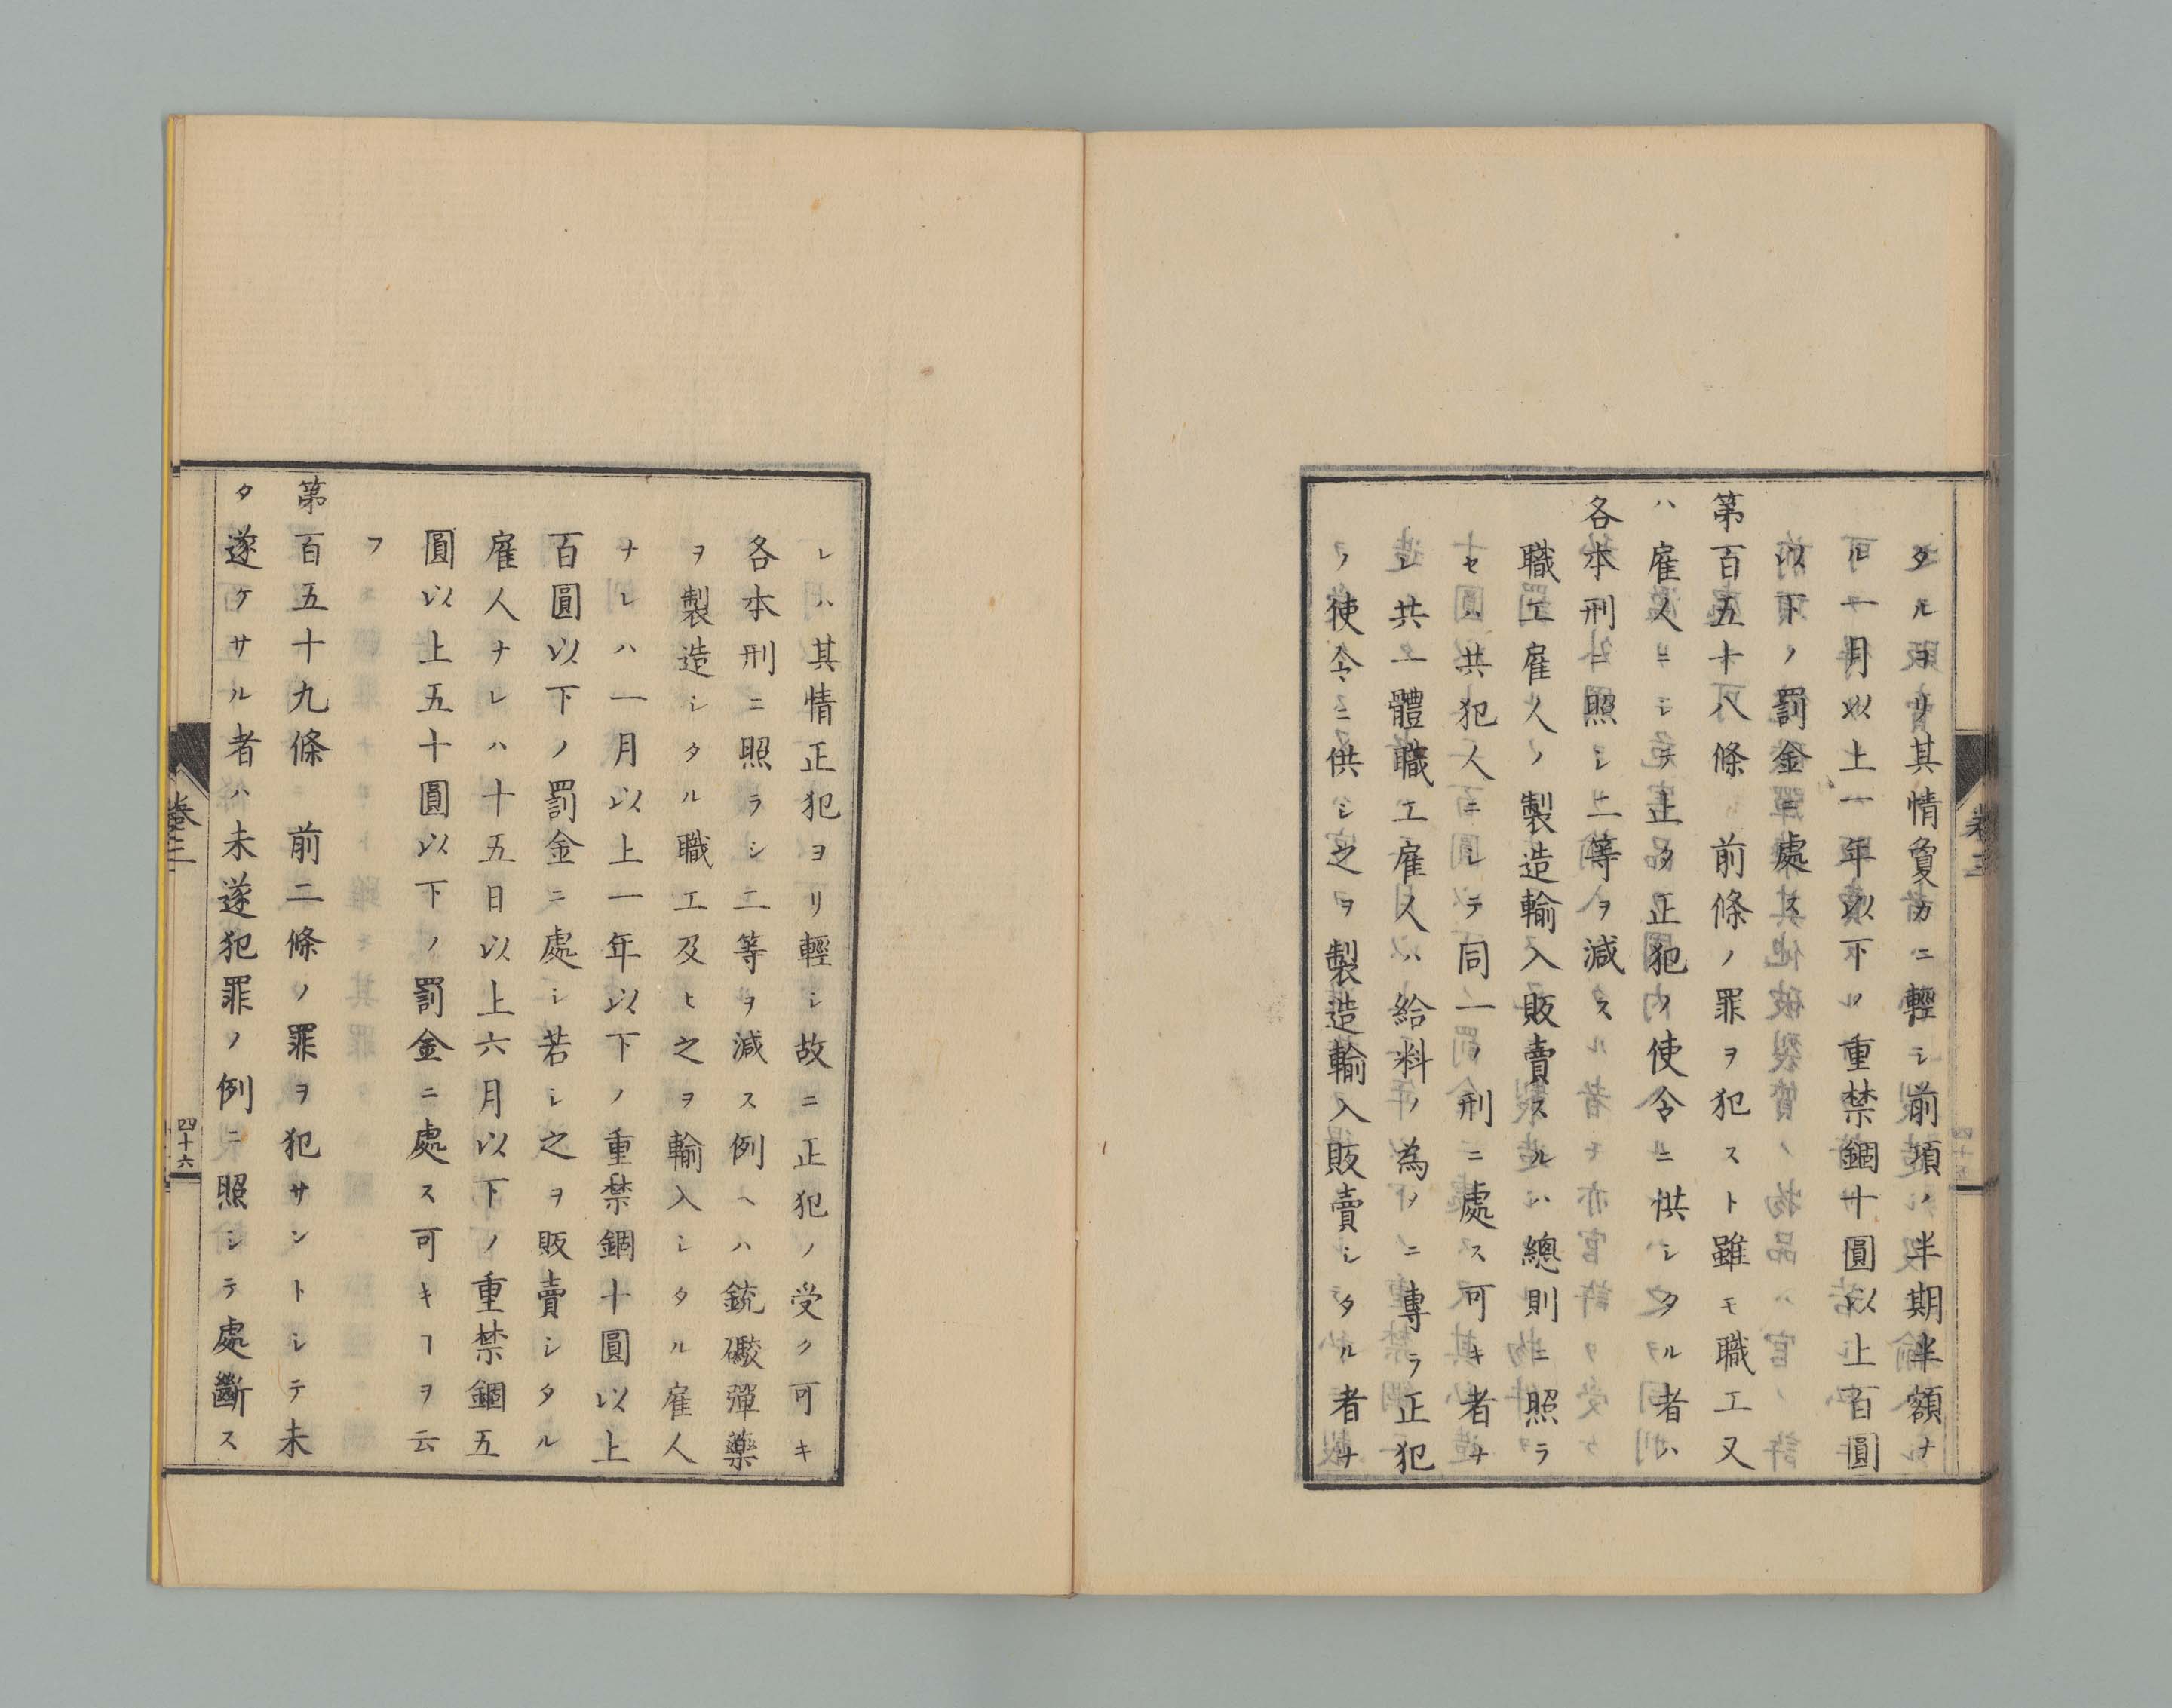 タルヨリ其情敻カニ輕シ前項ノ半期半額ナ
ル一月以上一年以下ノ重禁錮十圓以上百圓
以下ノ罰金ニ處ス
第百五十八條 前條ノ罪ヲ犯スト雖モ職工又
ハ雇人ニシテ止タ正犯ノ使令ニ供シタル者ハ
各本刑ニ照シ二等ヲ減ス
職工雇人ノ製造輸入販賣スルハ總則ニ照ラ
セハ共犯人ニシテ同一ノ刑ニ處ス可キ者ナ
レ共一體職工雇人ハ給料ノ為ノニ專ラ正犯
ノ使令ニ供シ之ヲ製造輸入販賣シタル者ナ
卷三
レハ其情正犯ヨリ輕シ故ニ正犯ノ受ク可キ
各本刑ニ照ラシ二等ヲ減ス例ヘハ銃礮彈藥
ヲ製造シタル職工及ヒ之ヲ輸入シタル雇人
ナレハ一月以上一年以下ノ重禁錮十圓以上
百圓以下ノ罰金ニ處シ若シ之ヲ販賣シタル
雇人ナレハ十五日以上六月以下ノ重禁錮五
圓以上五十圓以下ノ罰金ニ處ス可キヿヲ云
フ
第百五十九條 前二條ノ罪ヲ犯サントシテ未
タ遂ケサル者ハ未遂犯罪ノ例ニ照シテ處斷ス
卷三
四十六